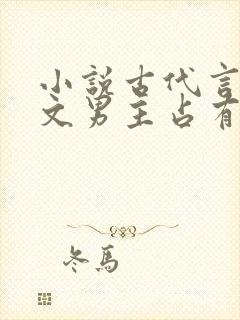 小说古代言
文男主占有
冬馬